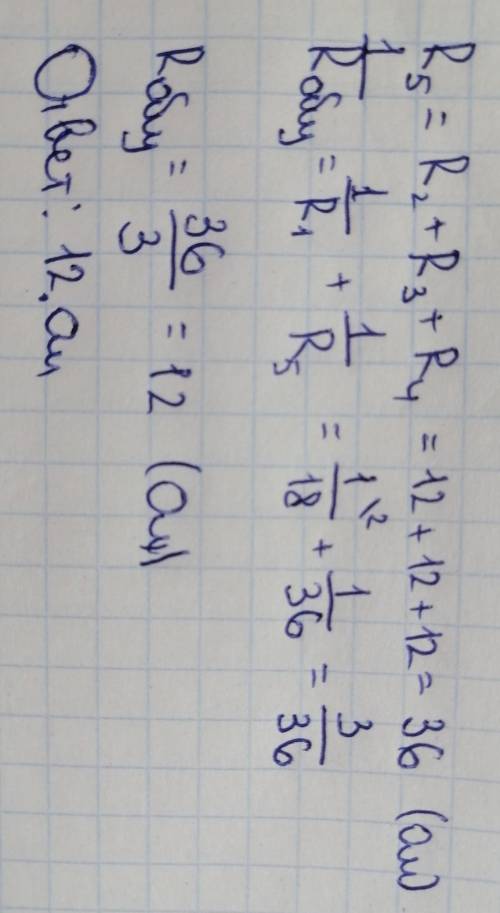 R₅ = R₂ + R₃ + R₄ = 12 + 12 + 12 = 36 (Ом)
1/Rобщ = 1/R₁ + 1/R₅ = 1/18 \2 + 1/36 = 3/36
Rобщ = 36/3 = 12 (Ом)
Ответ: 12 Ом